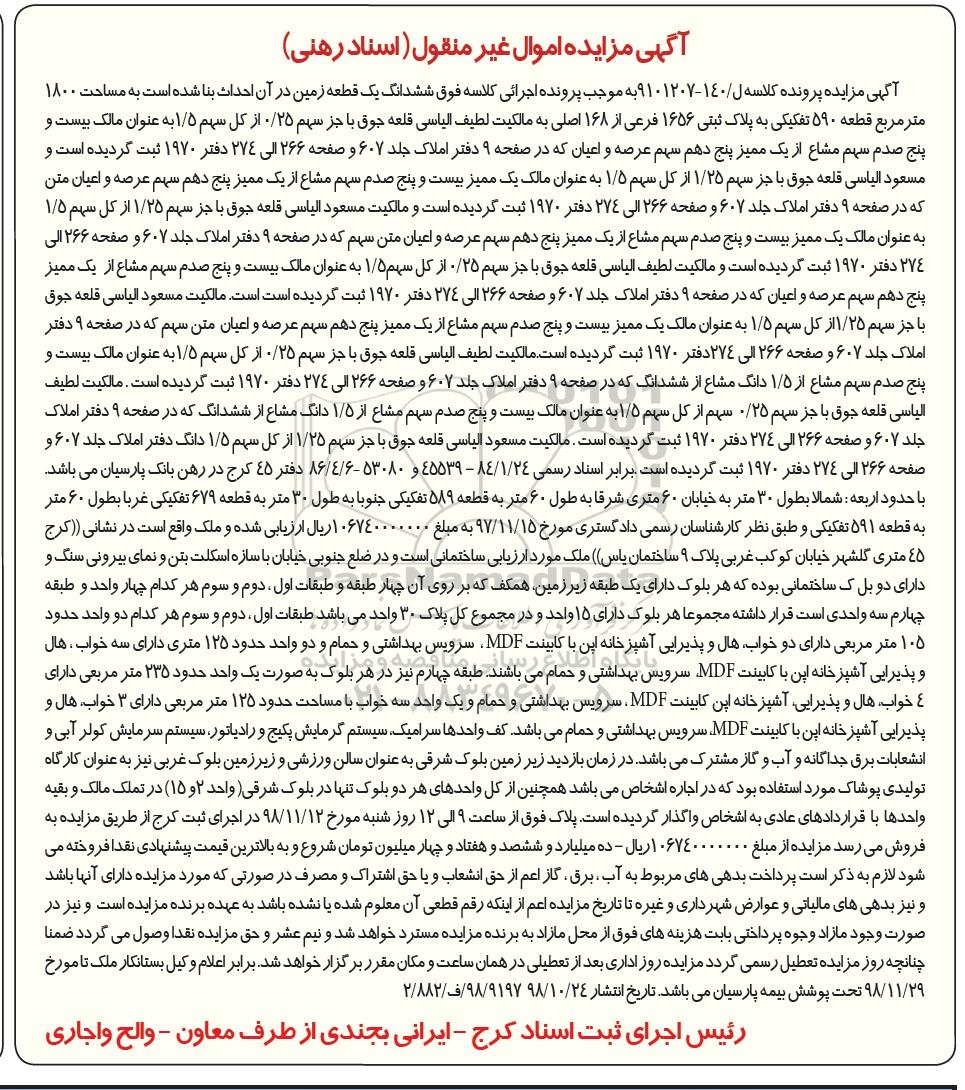 آگهی مزایده اموال غیر منقول( اسناد رهنی)
آگهی مزایده پرونده کلاسه ل/۱۴۰-۹۱۰۱۲۰۷به موجب پرونده اجرائی کلاسه فوق ششدانگ یک قطعه زمین در آن احداث بنا شده است به مساحت ۱۸۰۰
مترمربع قطعه ۵۹۰ تفکیکی به پلاک ثبتی ۱۶۵۶ فرعی از ۱۶۸ اصلی به مالکیت لطیف الیاسی قلعه جوق با جز سهم ۰/۲۵ از کل سهم ۱/۵به عنوان مالک بیست و
پنج صدم سهم مشاع از یک ممیز پنج دهم سهم عرصه و اعیان که در صفحه ۹ دفتر املاک جلد ۶۰۷ و صفحه ۲۶۶ الی ۲۷۴ دفتر ۱۹۷۰ ثبت گردیده است و
مسعود الیاسی قلعه جوق با جز سهم ۱/۲۵ از کل سهم ۱/۵ به عنوان مالک یک ممیز بیست و پنج صدم سهم مشاع از یک ممیز پنج دهم سهم عرصه و اعیان متن
که در صفحه ۹ دفتر املاک جلد ۶۰۷ و صفحه ۲۶۶ الی ۲۷۴ دفتر ۱۹۷۰ ثبت گردیده است و مالکیت مسعود الیاسی قلعه جوق با جز سهم ۱/۲۵ از کل سهم ۱/۵
به عنوان مالک یک ممیز بیست و پنج صدم سهم مشاع از یک ممیز پنج دهم سهم عرصه و اعیان متن سهم که در صفحه ۹ دفتر املاک جلد ۶۰۷ و صفحه ۲۶۶ الی
۲۷۴ دفتر ۱۹۷۰ ثبت گردیده است و مالکیت لطیف الیاسی قلعه جوق با جز سهم ۰/۲۵ از کل سهم۱/۵ به عنوان مالک بیست و پنج صدم سهم مشاع از یک ممیز
پنج دهم سهم عرصه و اعیان که در صفحه ۹ دفتر املاک جلد ۶۰۷ و صفحه ۲۶۶ الی ۲۷۴ دفتر ۱۹۷۰ ثبت گردیده است است. مالکیت مسعود الیاسی قلعه جوق
با جز سهم ۱/۲۵از کل سهم ۱/۵ به عنوان مالک یک ممیز بیست و پنج صدم سهم مشاع از یک ممیز پنج دهم سهم عرصه و اعیان متن سهم که در صفحه ۹ دفتر
املاک جلد ۶۰۷ و صفحه ۲۶۶ الی ۲۷۴دفتر ۱۹۷۰ ثبت گردیده است.مالکیت لطیف الیاسی قلعه جوق با جز سهم ۰/۲۵ از کل سهم ۱/۵به عنوان مالک بیست و
پنج صدم سهم مشاع از ۱/۵ دانگ مشاع از ششدانگ که در صفحه ۹ دفتر املاک جلد ۶۰۷ و صفحه ۲۶۶ الی ۲۷۴ دفتر ۱۹۷۰ ثبت گردیده است . مالکیت لطیف
الیاسی قلعه جوق با جز سهم ۰/۲۵ سهم از کل سهم ۱/۵به عنوان مالک بیست و پنج صدم سهم مشاع از ۱/۵ دانگ مشاع از ششدانگ که در صفحه ۹ دفتر املاک
جلد ۶۰۷ و صفحه ۲۶۶ الی ۲۷۴ دفتر ۱۹۷۰ ثبت گردیده است . مالکیت مسعود الیاسی قلعه جوق با جز سهم ۱/۲۵ از کل سهم ۱/۵ دانگ دفتر املاک جلد ۶۰۷ و
صفحه ۲۶۶ الی ۲۷۴ دفتر ۱۹۷۰ ثبت گردیده است .برابر اسناد رسمی ۸۴/۱/۲۴ – ۴۵۵۳۹ و ۵۳۰۸۰ -۸۶/۴/۶ دفتر ۴۵ کرج در رهن بانک پارسیان می باشد.
با حدود اربعه : شمالا بطول ۳۰ متر به خیابان ۶۰ متری شرقا به طول ۶۰ متر به قطعه ۵۸۹ تفکیکی جنوبا به طول ۳۰ متر به قطعه ۶۷۹ تفکیکی غربا بطول ۶۰ متر
به قطعه ۵۹۱ تفکیکی و طبق نظر کارشناسان رسمی دادگستری مورخ ۹۷/۱۱/۱۵ به مبلغ ۱۰۶۷۴۰۰۰۰۰۰۰ریال ارزیابی شده و ملک واقع است در نشانی ((کرج
۴۵ متری گلشهر خیابان کوکب غربی پلاک ۹ ساختمان یاس)) ملک مورد ارزیابی ساختمانی است و در ضلع جنوبی خیابان با سازه اسکلت بتن و نمای بیرونی سنگ و
دارای دو بل ک ساختمانی بوده که هر بلوک دارای یک طبقه زیرزمین. همکف که بر روی آن چهار طبقه و طبقات اول ، دوم و سوم هر کدام چهار واحد و طبقه
چهارم سه واحدی است قرار داشته مجموعا هر بلوک دارای ۱۵واحد و در مجموع کل پلاک ۳۰ واحد می باشد. طبقات اول ، دوم و سوم هر کدام دو واحد حدود
۱۰۵ متر مربعی دارای دو خواب، هال و پذیرایی آشپزخانه اپن با کابینت MDF ، سرویس بهداشتی و حمام و دو واحد حدود ۱۲۵ متری دارای سه خواب ، هال
و پذیرایی آشپزخانه اپن با کابینت MDF، سرویس بهداشتی و حمام می باشند. طبقه چهارم نیز در هر بلوک به صورت یک واحد حدود ۲۳۵ متر مربعی دارای
۴ خواب، هال و پذیرایی، آشپزخانه اپن کابینت MDF ، سرویس بهداشتی و حمام و یک واحد سه خواب با مساحت حدود ۱۲۵ متر مربعی دارای ۳ خواب، هال و
پذیرایی آشپزخانه اپن با کابینت MDF، سرویس بهداشتی و حمام می باشد. کف واحدها سرامیک، سیستم گرمایش پکیج و رادیاتور، سیستم سرمایش کولر آبی و
انشعابات برق جداگانه و آب و گاز مشترک می باشد. در زمان بازدید زیر زمین بلوک شرقی به عنوان سالن ورزشی و زیرزمین بلوک غربی نیز به عنوان کارگاه
تولیدی پوشاک مورد استفاده بود که در اجاره اشخاص می باشد همچنین از کل واحدهای هر دو بلوک تنها در بلوک شرقی( واحد ۲و ۱۵) در تملک مالک و بقیه
واحدها با قراردادهای عادی به اشخاص واگذار گردیده است. پلاک فوق از ساعت ۹ الی ۱۲ روز شنبه مورخ ۹۸/۱۱/۱۲ در اجرای ثبت کرج از طریق مزایده به
فروش می رسد مزایده از مبلغ ۱۰۶۷۴۰۰۰۰۰۰۰ریال – ده میلیارد و ششصد و هفتاد و چهار میلیون تومان شروع و به بالاترین قیمت پیشنهادی نقدا فروخته می
شود لازم به ذکر است پرداخت بدهی های مربوط به آب ، برق ، گاز اعم از حق انشعاب و یا حق اشتراک و مصرف در صورتی که مورد مزایده دارای آنها باشد
و نیز بدهی های مالیاتی و عوارض شهرداری و غیره تا تاریخ مزایده اعم از اینکه رقم قطعی آن معلوم شده یا نشده باشد به عهده برنده مزایده است و نیز در
صورت وجود مازاد وجوه پرداختی بابت هزینه های فوق از محل مازاد به برنده مزایده مسترد خواهد شد و نیم عشر و حق مزایده نقدا وصول می گردد ضمنا
چنانچه روز مزایده تعطیل رسمی گردد مزایده روز اداری بعد از تعطیلی در همان ساعت و مکان مقرر برگزار خواهد شد. برابر اعلام وکیل بستانکار ملک تا مورخ
۹۸/۱۱/۲۹ تحت پوشش بیمه پارسیان می باشد. تاریخ انتشار ۹۸/۱۰/۲۴ ۹۸/۹۱۹۷/ف/۲/۸۸۲
رئیس اجرای ثبت اسناد کرج – ایرانی بجندی از طرف معاون – والح واجاری
ParsNamadData
پایگاه اطلاع رسانی مناقصه و مزایده
۰۲۱-۸۸۳۴۹۶۷۰-۵